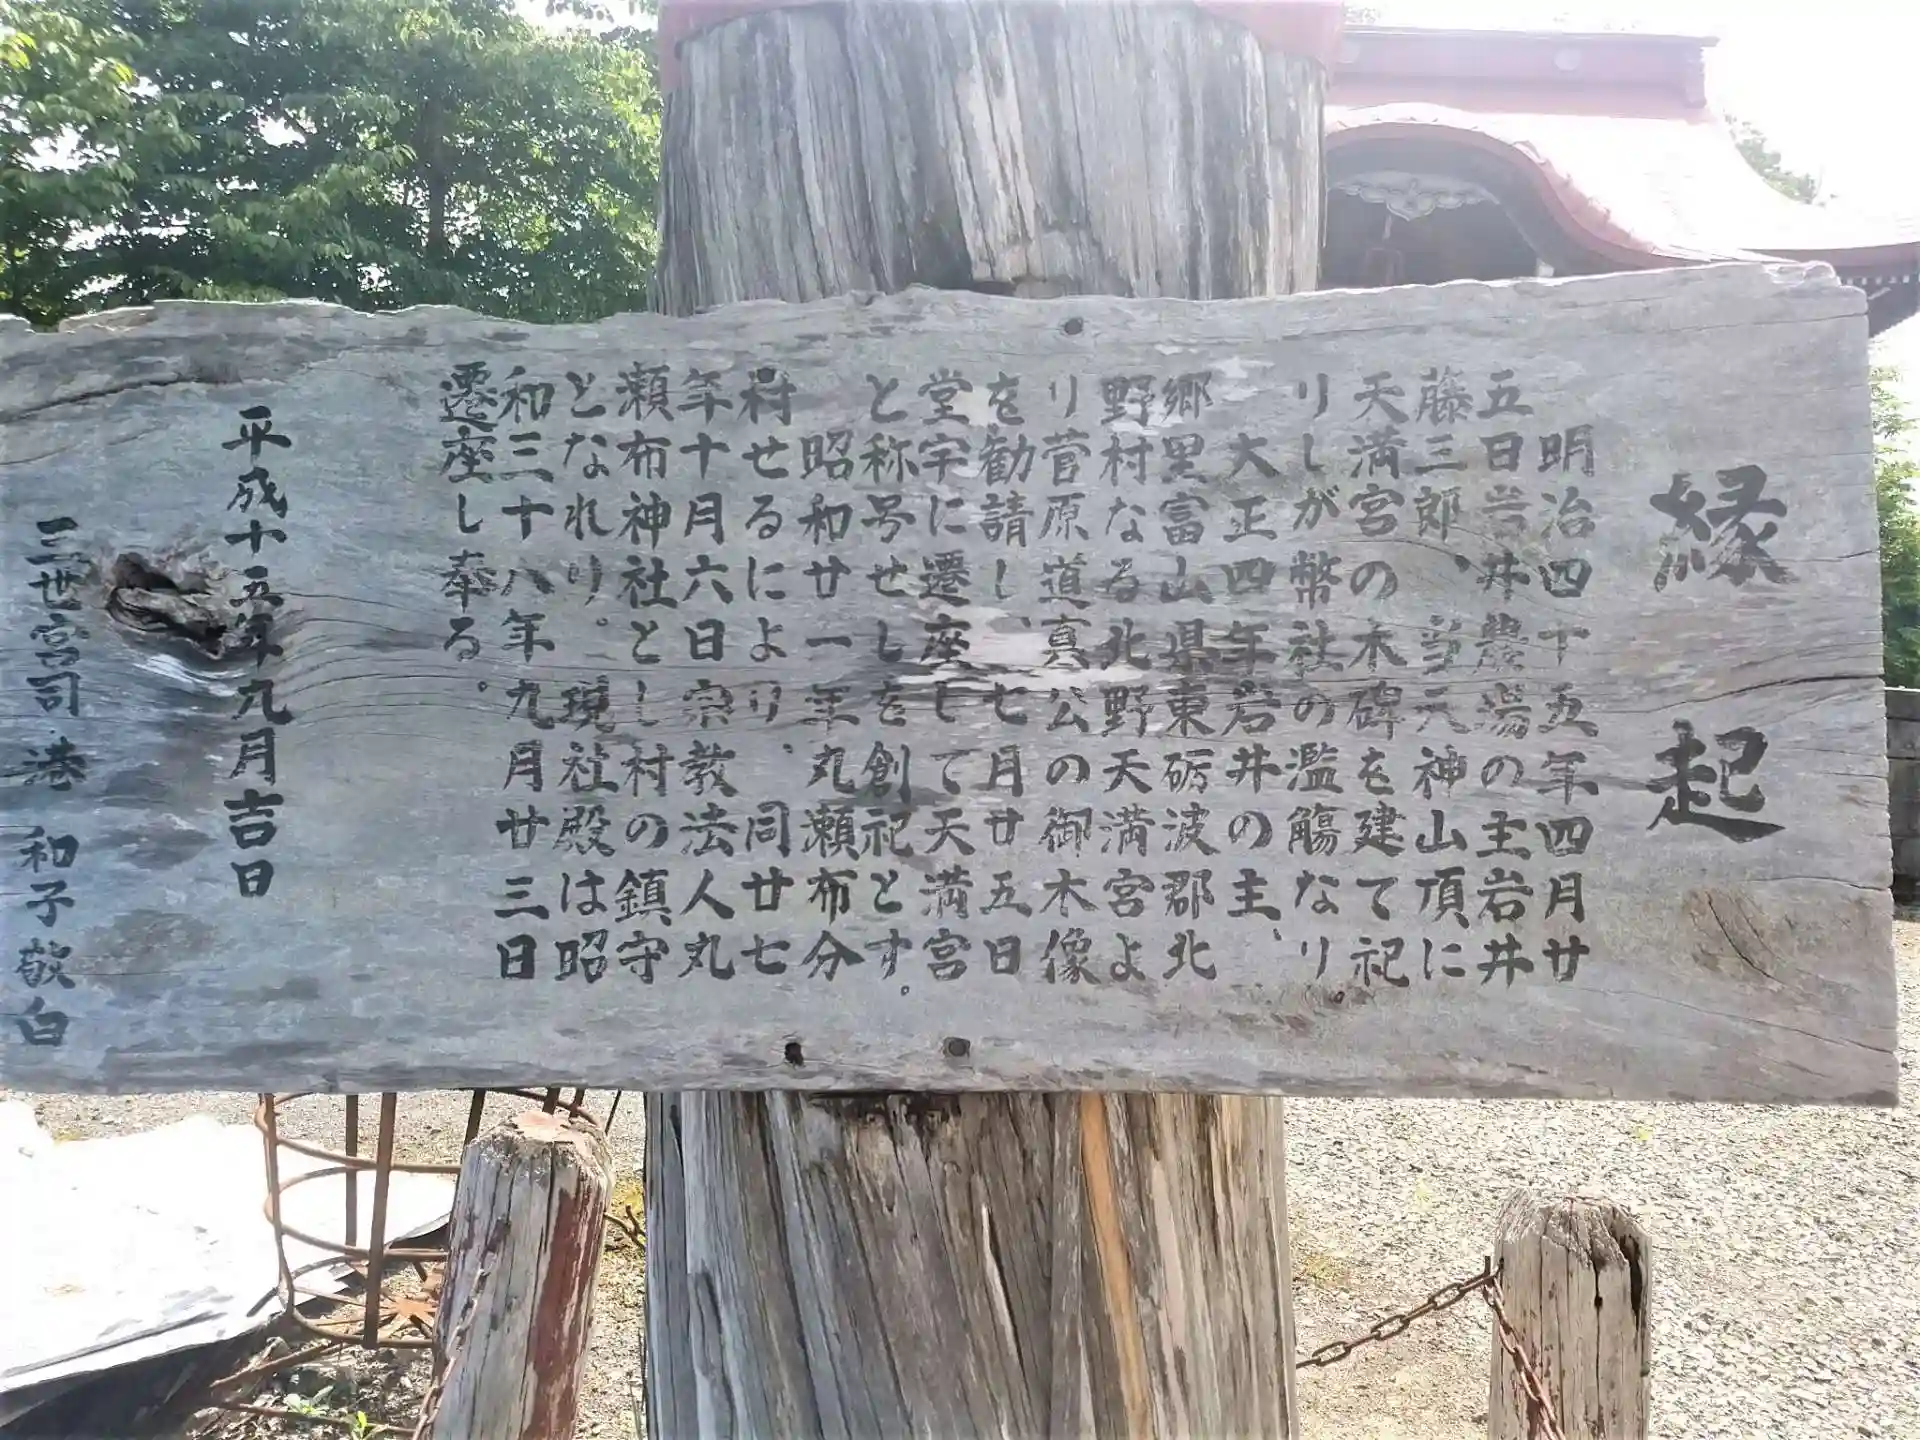 縁起
明治四十五年四月廿
五日岩井農場の主岩井
藤三郎、当元神山頂に
天満宮の木碑を建て祀
りしが幣社の濫觴なり。
大正四年岩井の主、
郷里富山県東砺波郡北
野村なる北野天満宮よ
り菅原道真公の御木像
を勧請し、七月廿五日
堂宇に遷座して天満宮
と称号せしを創祀とす。
昭和廿一年丸瀬布分
村せるにより、同廿七
年十月六日宗教法人丸
瀬布神社とし村の鎮守
となれり。現社殿は昭
和三十八年九月廿三日
遷座し奉る。
平成十五年九月吉日
三世宮司 港 和子敬白